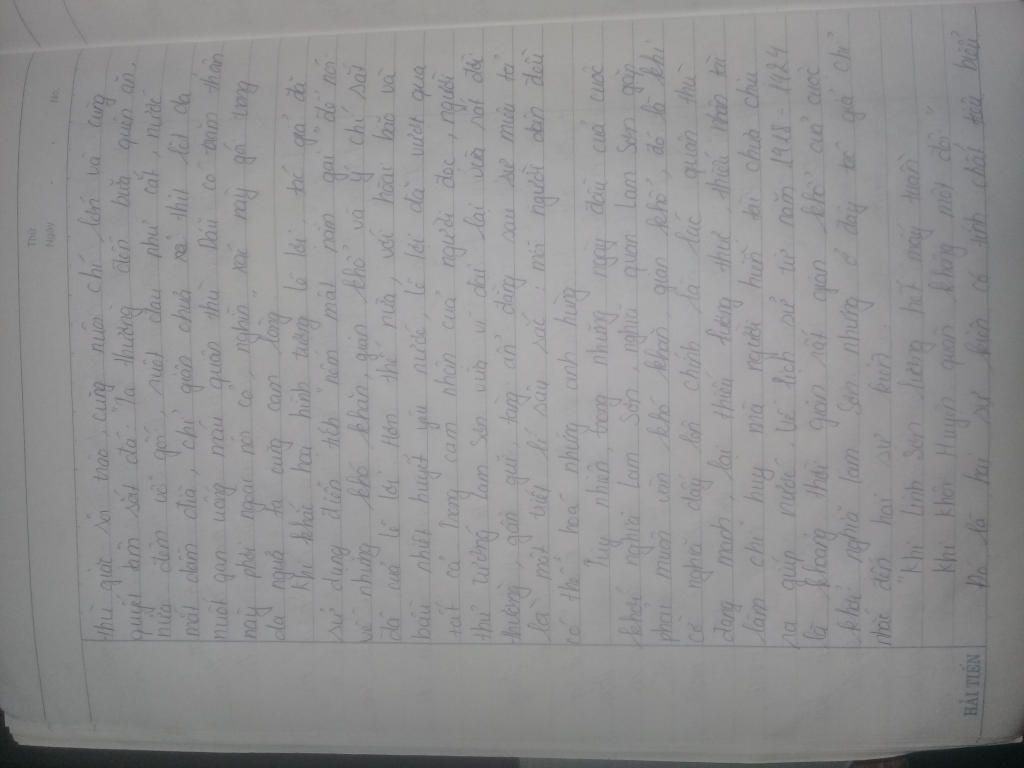 Thứ
Ngày No.
thù giặt sở trao, cùng nuôn chí lớn và cùng
quyết tâm sắt đá "ta thường đến bữa quên ăn,
nửa đêm vỗ gối, ruột đau như cắt, nước
mắt dầm dìa, chỉ giận chưa xả thịt lột da
nuốt gan uống máu quân thù. Dầu có trăm thân
này phơi ngoài nội cỏ, nghìn xác này gó trong
da ngựa ta cũng cam lòng".
Khi khái hai hình tượng lê lợi, tác giả đã
sử dụng điển tích "nếm mật nằm gai" để nói
về những khó khăn, gian khổ và ý chí sắt
đá của lê lợi. Hơn thế nữa, với hoài bão và
bầu nhiệt huyết yêu nước, lê lợi đã vượt qua
tất cả. Trong cảm nhận của người đọc, người
thủ lưỡng Lam Sơn vừa vĩ đại lại vừa rất đời
thường, gần gũi. Từng ẩn đằng sau sự miêu tả
là một triết lí sâu sắc: mỗi người dân đều
có thể hoá những anh hùng
Tuy nhiên, trong những ngày đầu của cuộc
khởi nghĩa Lam Sơn, nghĩa quân Lam Sơn gặp
phải muôn vàn khó khăn, gian khổ, đó là khi
cờ nghĩa dấy lên chính là lúc quân thù
đang mạnh, lại thiếu lương thư, thiếu thốn từ
lâm chỉ huy mà người hiền tài chưa chịu
ra giúp nước. Về lịch sử từ năm 1418 - 1424
là khoảng thời gian rất gian khổ của cuộc
khởi nghĩa Lam Sơn nhưng ở đây tác giả chỉ
nhắc đến hai sự kiện.
"Khi linh Sơn lương hết mấy tuần
Khi Khôi Huyện quân không một đội"
Đó là hai sự kiện có tính chất tiêu biểu
HẢI TIẾN